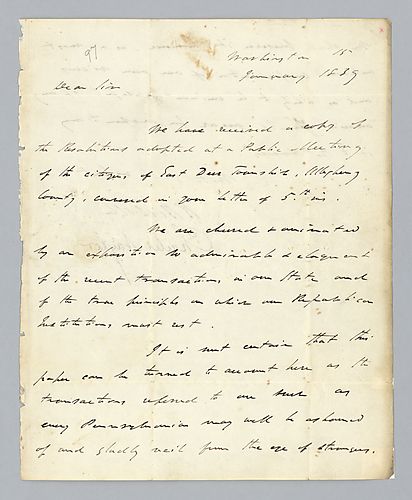 97
Washington 15
January 1839
Dear Sir
We have received a copy of
the Resolutions adopted at a Public Meeting
of the citizens of East Deer Township, Allegheny
County, covered in your letter of 5th ins.
We are cheered & animated
by an exposition so admirable & eloquent
of the recent transactions in our State and
of the true principles on which our Republican
Institutions must rest.
It is not certain that this
paper can be turned to account here as the
transactions referred to are such as
every Pennsylvanian may well be ashamed
of and gladly veil from the eye of strangers.